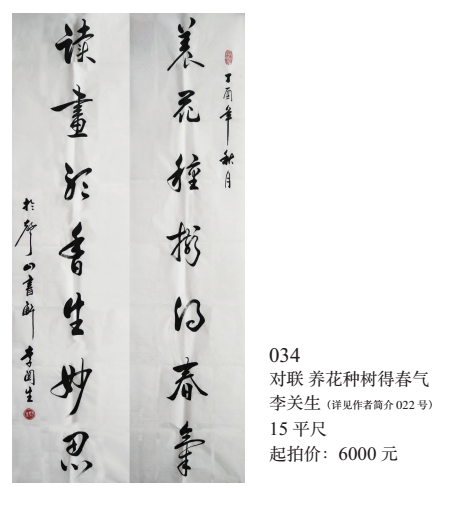 丁酉年秋月
养花種樹得春氣
读畫聽香生妙思
山書軒 李関生
034
对联 养花种树得春气
李关生（详见作者简介 022 号）
15 平尺
起拍价：6000 元